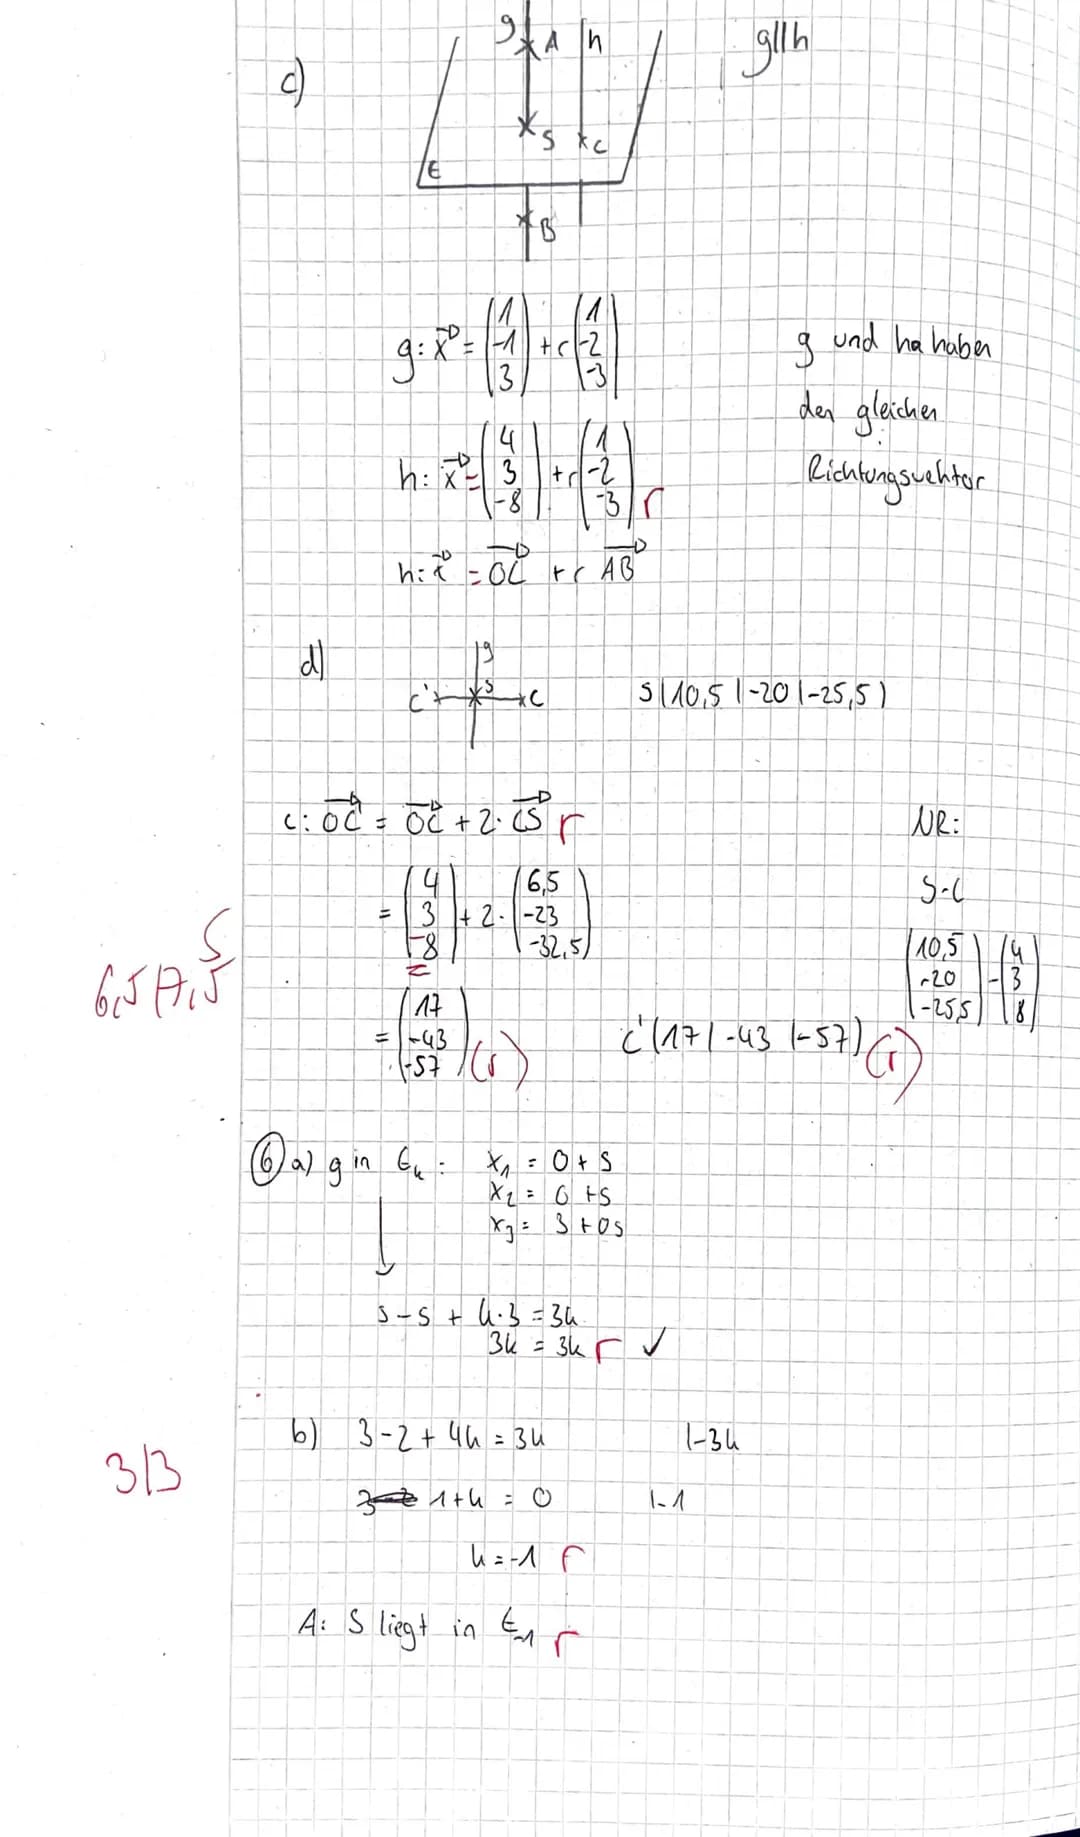 c)
g A h g||h
S C
E
B
g: x = (1 -1 3) + r (1 -2 -3)
g und ha haben
den gleichen
Richtungsvektor
h: x = (4 3 -8) + r (1 -2 -3) r
h: x = OC + r AB
d)
g
C' S C S(10,5 |-20 |-25,5)
c: OC' = OC + 2· CS r NR:
= (4 3 -8) + 2· (6,5 -23 -32,5) S-C
(10,5 -20 -25,5) - (4 3 8)
6,5/7,5
= (17 -43 -57) (r) C'(17 | -43 |-57) (r)
6 a) g in Ek: x1 = 0 + s
x2 = 0 + s
x3 = 3 + 0s
s - s + k·3 = 3k
3k = 3k r ✓
b) 3 - 2 + 4k = 3k |-3k
3/3
1 + k = 0 |-1
k = -1 r
A: S liegt in E-1 r